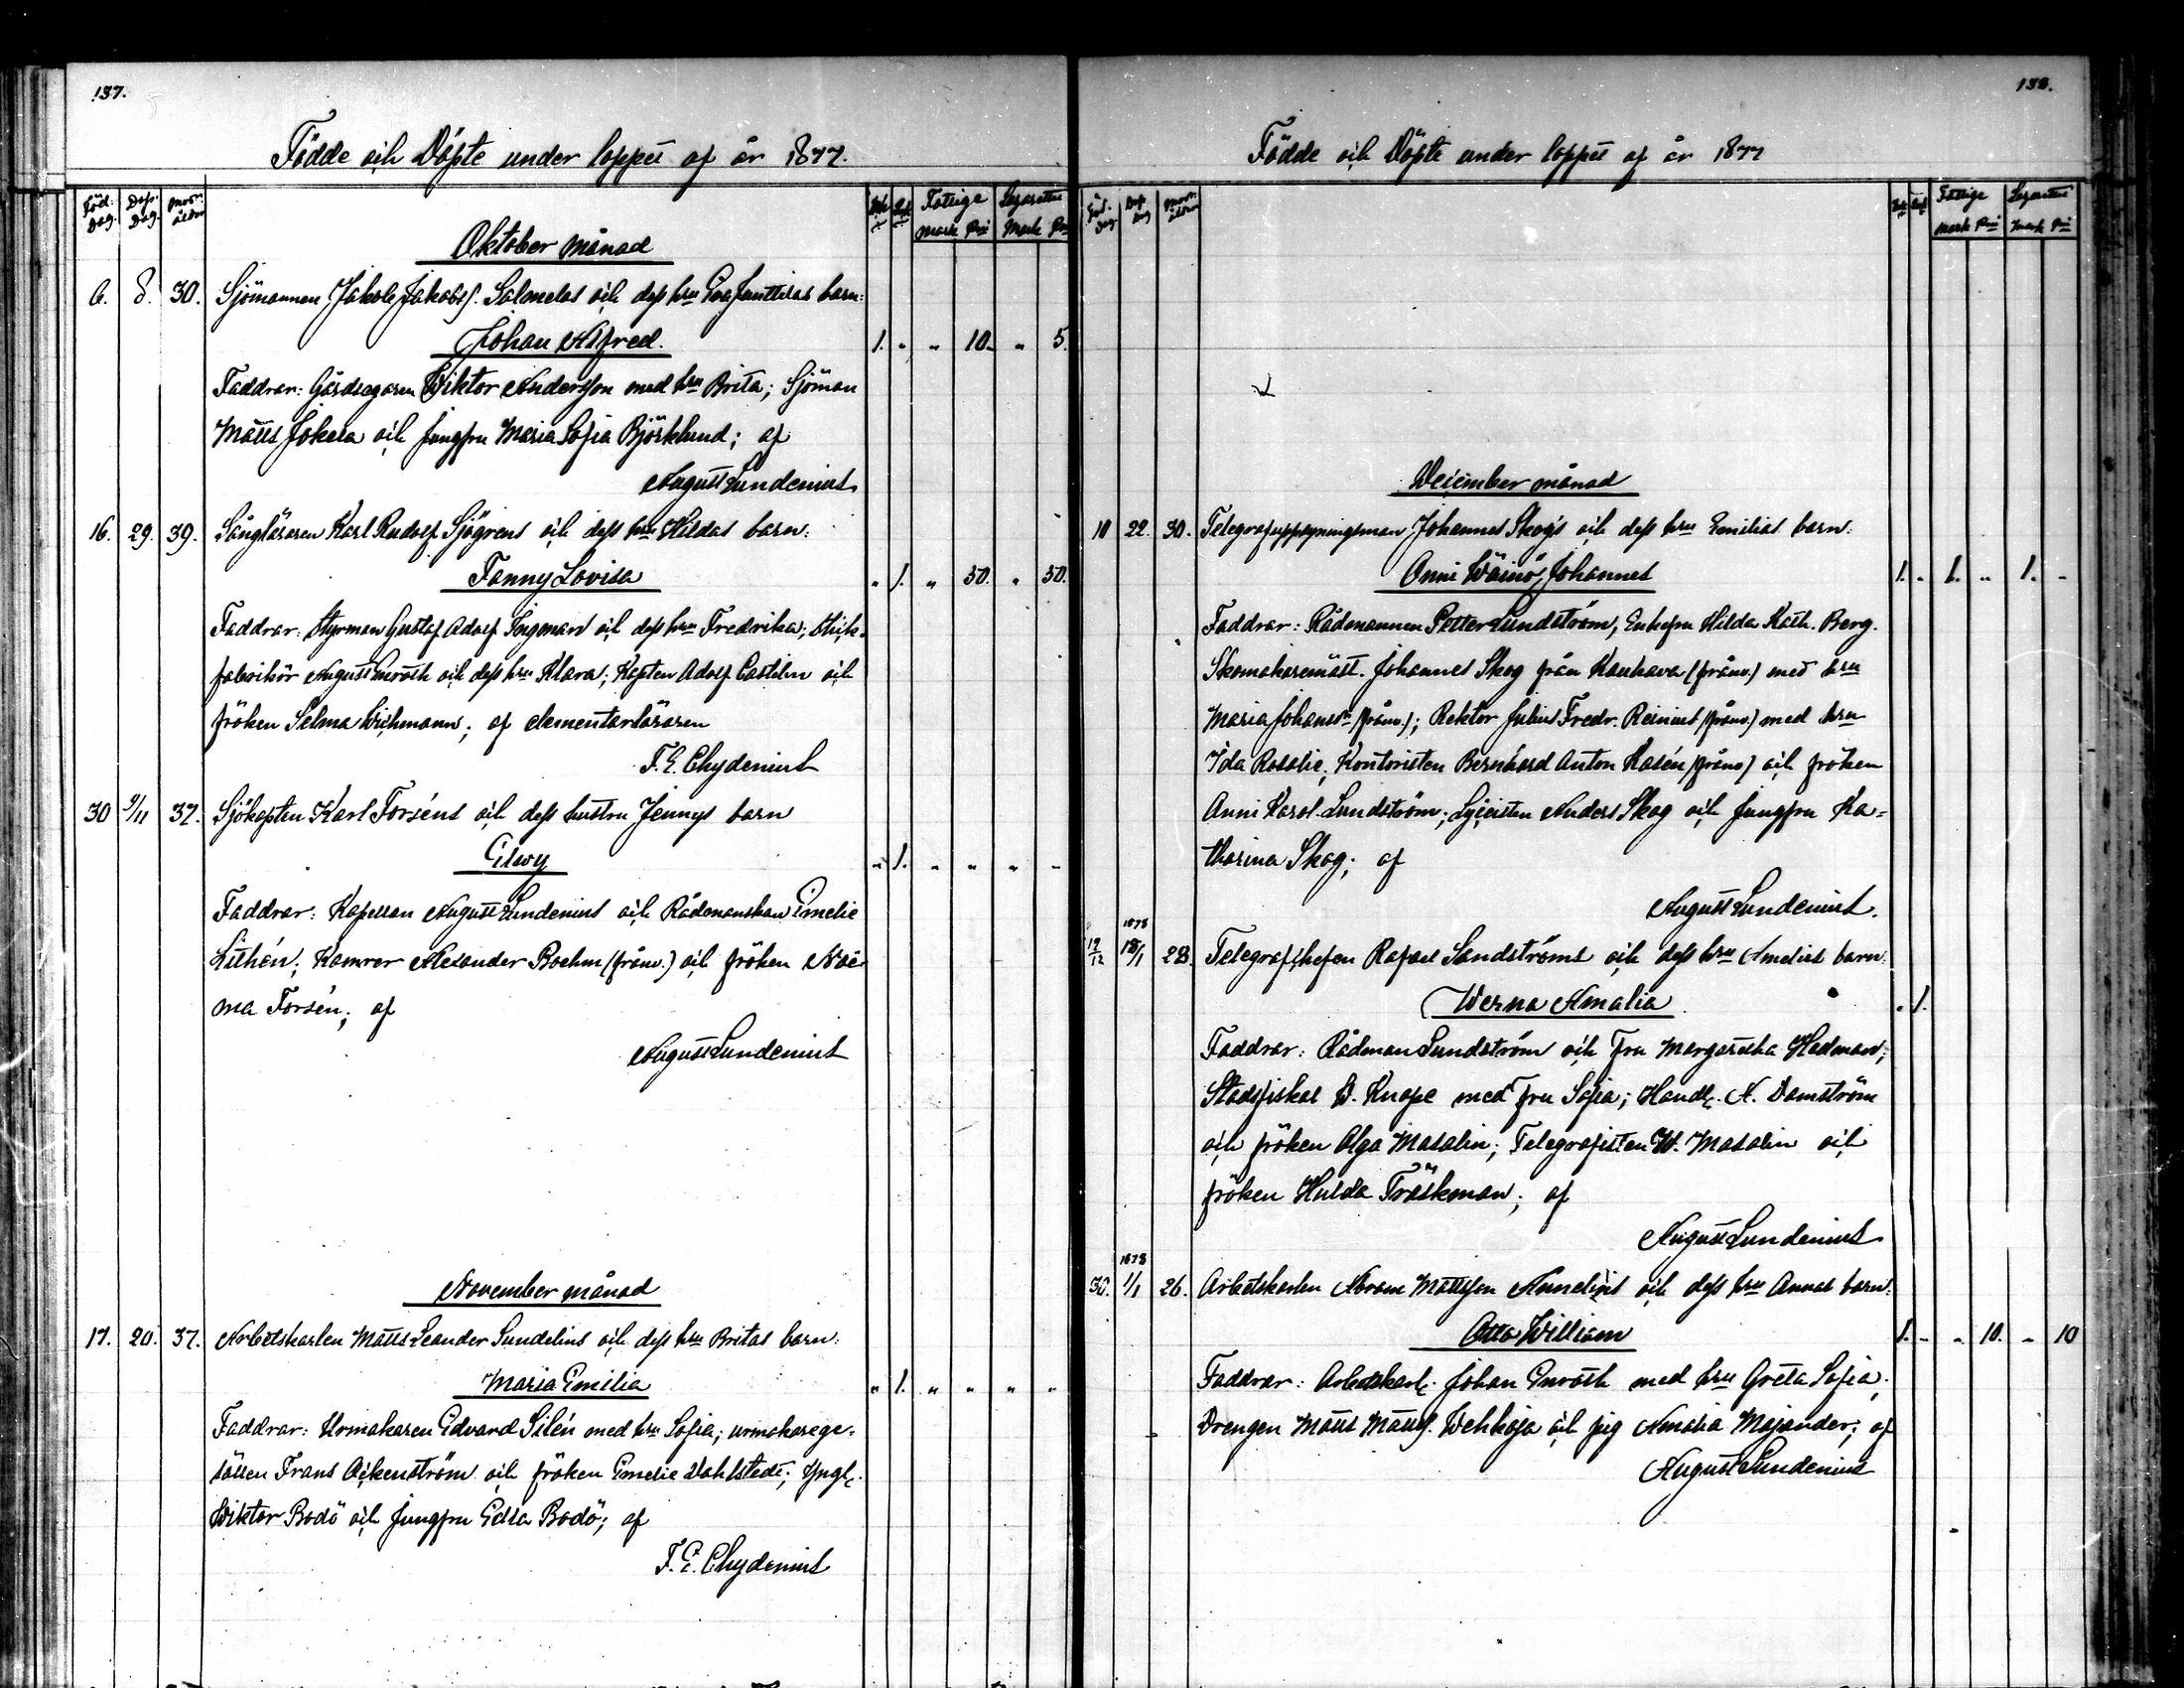 137.
Födde och Döpte under loppet af år 1877.
Föd: Dag. Döp. Dag. Mors ålder Fattige Lazarettet
Mark Pni Mark Pni
Oktober månad
6. 8. 30. Sjömannen Jakob Jakobs. Salmelas och dess hru Eva barn:
Johan Alfred. 1. " " 10. " 5.
Faddrar: Gårdsegaren Wiktor Andersson med hru Brita; Sjöman
Matts Jokela och jungfru Maria Sofia Björklund; af
August Lundenius
16. 29. 39. Sångläraren Karl Rudolf Sjögrens och dess hru Hildas barn:
Fanny Lovisa " 1. " 50. " 50.
Faddrar: Styrman Gustaf Adolf Ingman och dess hru Fredrika;
fabrikör August Enroth och dess hru Klara; Kapten Adolf Castrén och
fröken Selma Wichmann; af elementarläraren
F. E. Chydenius
30 9/11 37. Sjökapten Karl Forséns och dess hustru Jennys barn
Elwy " 1. " " " "
Faddrar: Kapellan August Lundenius och Rådmanskan Emelie
Lithén; Kamrer Alexander Boehm (frånv.) och fröken Noë-
ma Forsén; af
August Lundenius
November månad
17. 20. 37. Arbetskarlen Matts Leander Sundelins och dess hru Britas barn:
Maria Emilia " 1. " " " "
Faddrar: Urmakaren Edvard Silén med hru Sofia; urmakarege-
sällen Frans Åckenström och fröken Emelie Dahlstedt; Yngl.
Wiktor Bodö och jungfru Edla Bodö; af
F. E. Chydenius
138.
Födde och Döpte under loppet af år 1877
Föd. Dag Döp. Dag Mors ålder Fattige Lazarettet
Mark Pni Mark Pni
December månad
10 22. 30. Telegrafuppsyningsman Johannes Skogs och dess hru Emilias barn:
Onni Wäinö Johannes 1. " 1. " 1. "
Faddrar: Rådmannen Petter Lundström, Enkefru Hilda Kath. Berg.
Skomakaremäst. Johannes Skog från Kauhava (frånv.) med hru
Maria Johansdr (frånv.); Rektor Julius Fredr. Reinius (frånv.) med hru
Ida Rosalie; Kontoristen Bernhard Anton Rasén (frånv) och fröken
Anni Karol. Lundström; Lyceisten Anders Skog och jungfru Ka-
tharina Skog; af
August Lundenius.
1878
19/12 18/1 28. Telegrafchefen Rafael Sandströms och dess hru Amelies barn:
Werna Amalia " 1.
Faddrar: Rådman Lundström och Fru Margaretha Hedman;
Stadsfiskal W. Knape med fru Sofia; Handl. A. Damström
och fröken Olga Masalin; Telegrafisten W. Masalin och
fröken Hulda Träskman; af
August Lundenius
1878
30. 1/1 26. Arbetskarlen Abram Mattsson Annelins och dess hru Annas barn:
Otto William 1. " " 10. " 10
Faddrar: Arbetskarl. Johan Enroth med hru Greta Sofia;
Drengen Matts Matts. Wehkoja och pig Amalia Majander; af
August Lundenius